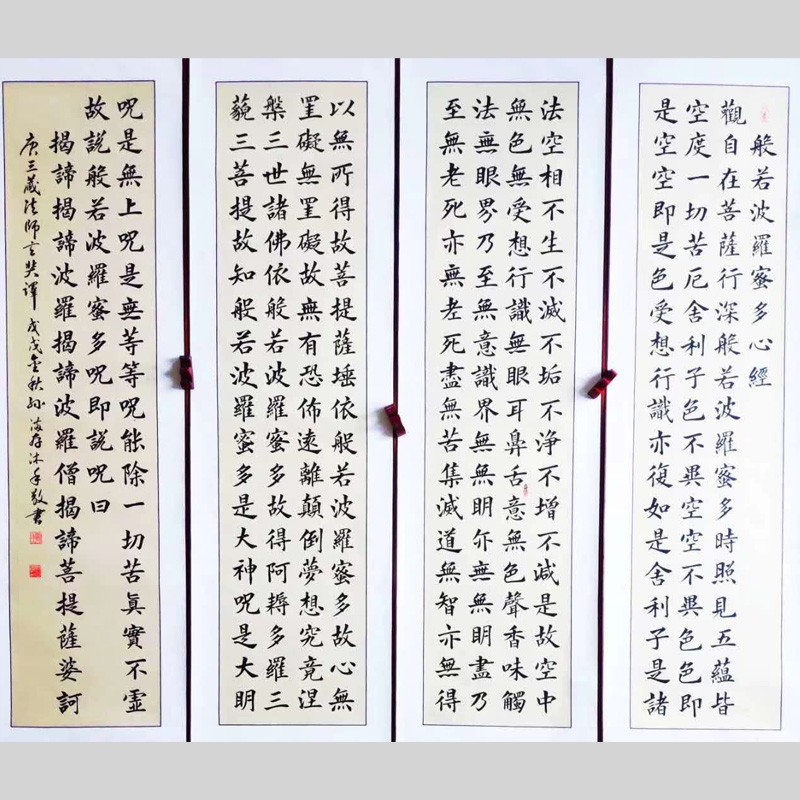 般若波羅蜜多心經
觀自在菩薩行深般若波羅蜜多時照見五蘊皆
空度一切苦厄舍利子色不異空空不異色色即
是空空即是色受想行識亦復如是舍利子是諸
法空相不生不滅不垢不净不增不減是故空中
無色無受想行識無眼耳鼻舌意無色聲香味觸
法無眼界乃至無意識界無無明亦無無明盡乃
至無老死亦無老死盡無苦集滅道無智亦無得
以無所得故菩提薩埵依般若波羅蜜多故心無
罣礙無罣礙故無有恐佈遠離顛倒夢想究竟涅
槃三世諸佛依般若波羅蜜多故得阿耨多羅三
藐三菩提故知般若波羅蜜多是大神呪是大明
呪是無上呪是無等等呪能除一切苦眞實不虛
故説般若波羅蜜多呪即説呪曰
揭諦揭諦波羅揭諦波羅僧揭諦菩提薩婆訶
唐三藏法師玄奘譯 戊戌金秋孙海存沐手敬書